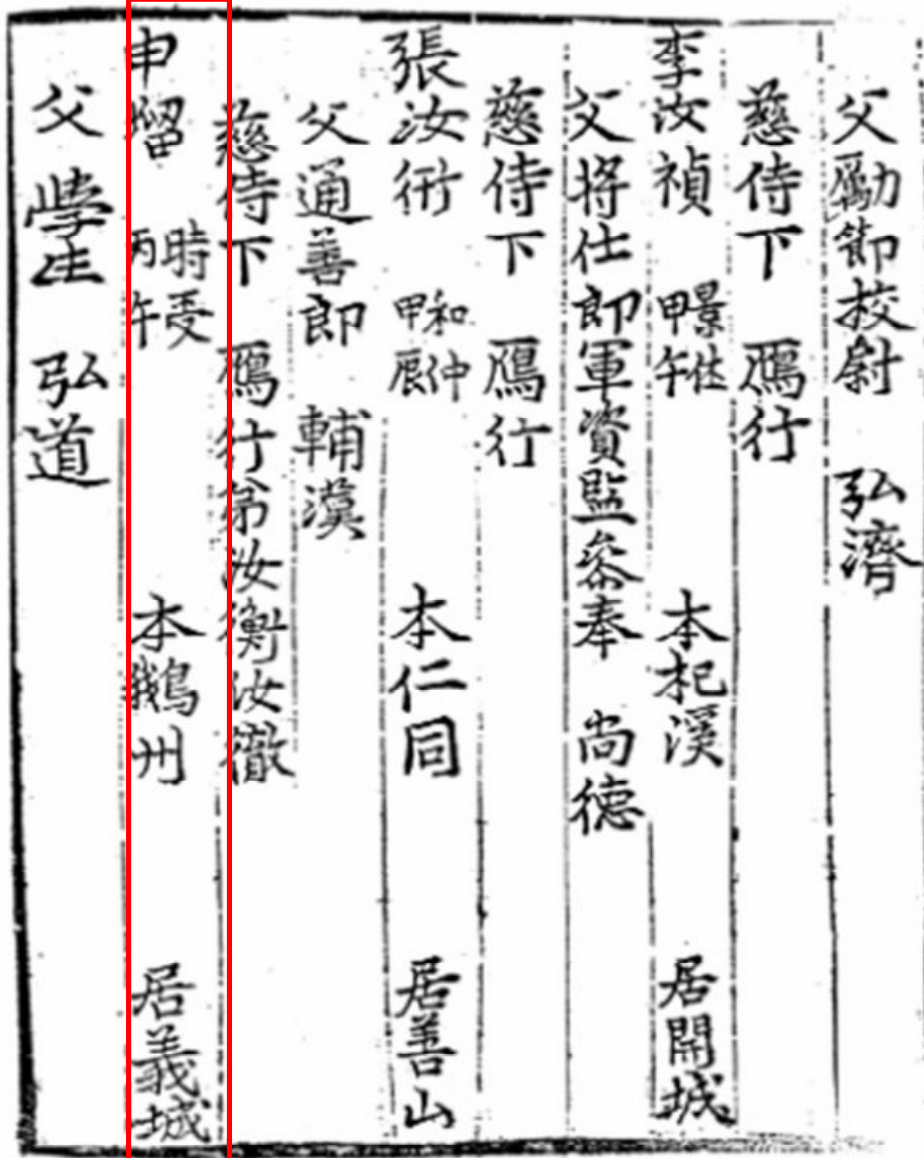 父勵節校尉 弘濟
慈侍下 鴈行
李汝禎 景休甲午 本杞溪 居開城
父將仕郎軍資監叅奉 尚德
慈侍下 鴈行
張汝衎 和仲甲辰 本仁同 居善山
父通善郎 輔漢
慈侍下 鴈行弟汝衡汝徹
申㽞 時受丙午 本鵝州 居義城
父 學生 弘道